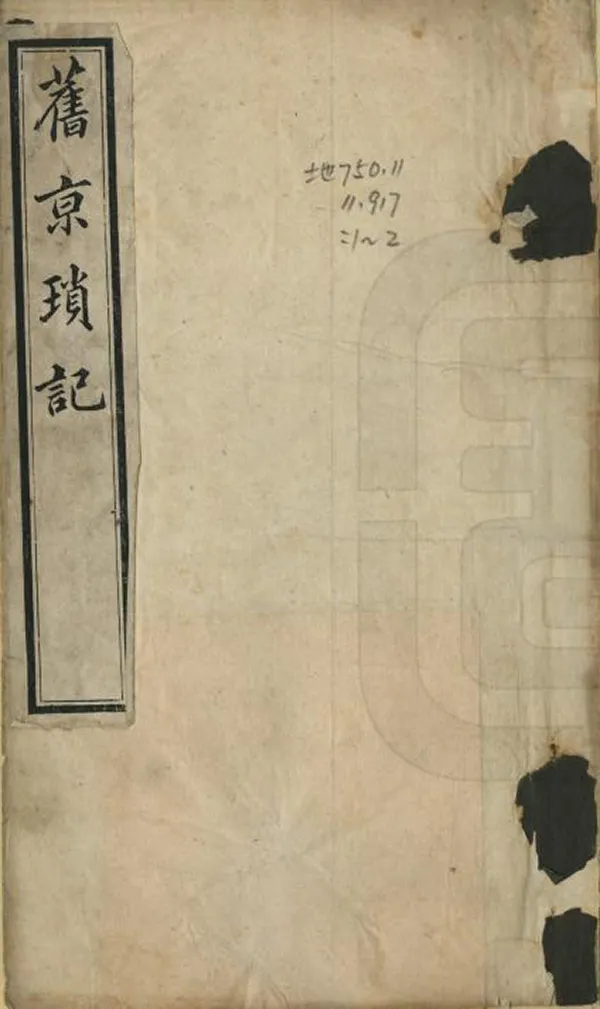 舊京瑣記
地750.11
11.917
:1~2